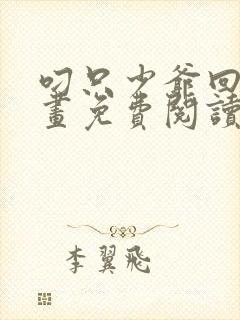 叼只少爷回
畫免費閱讀
李翼飛